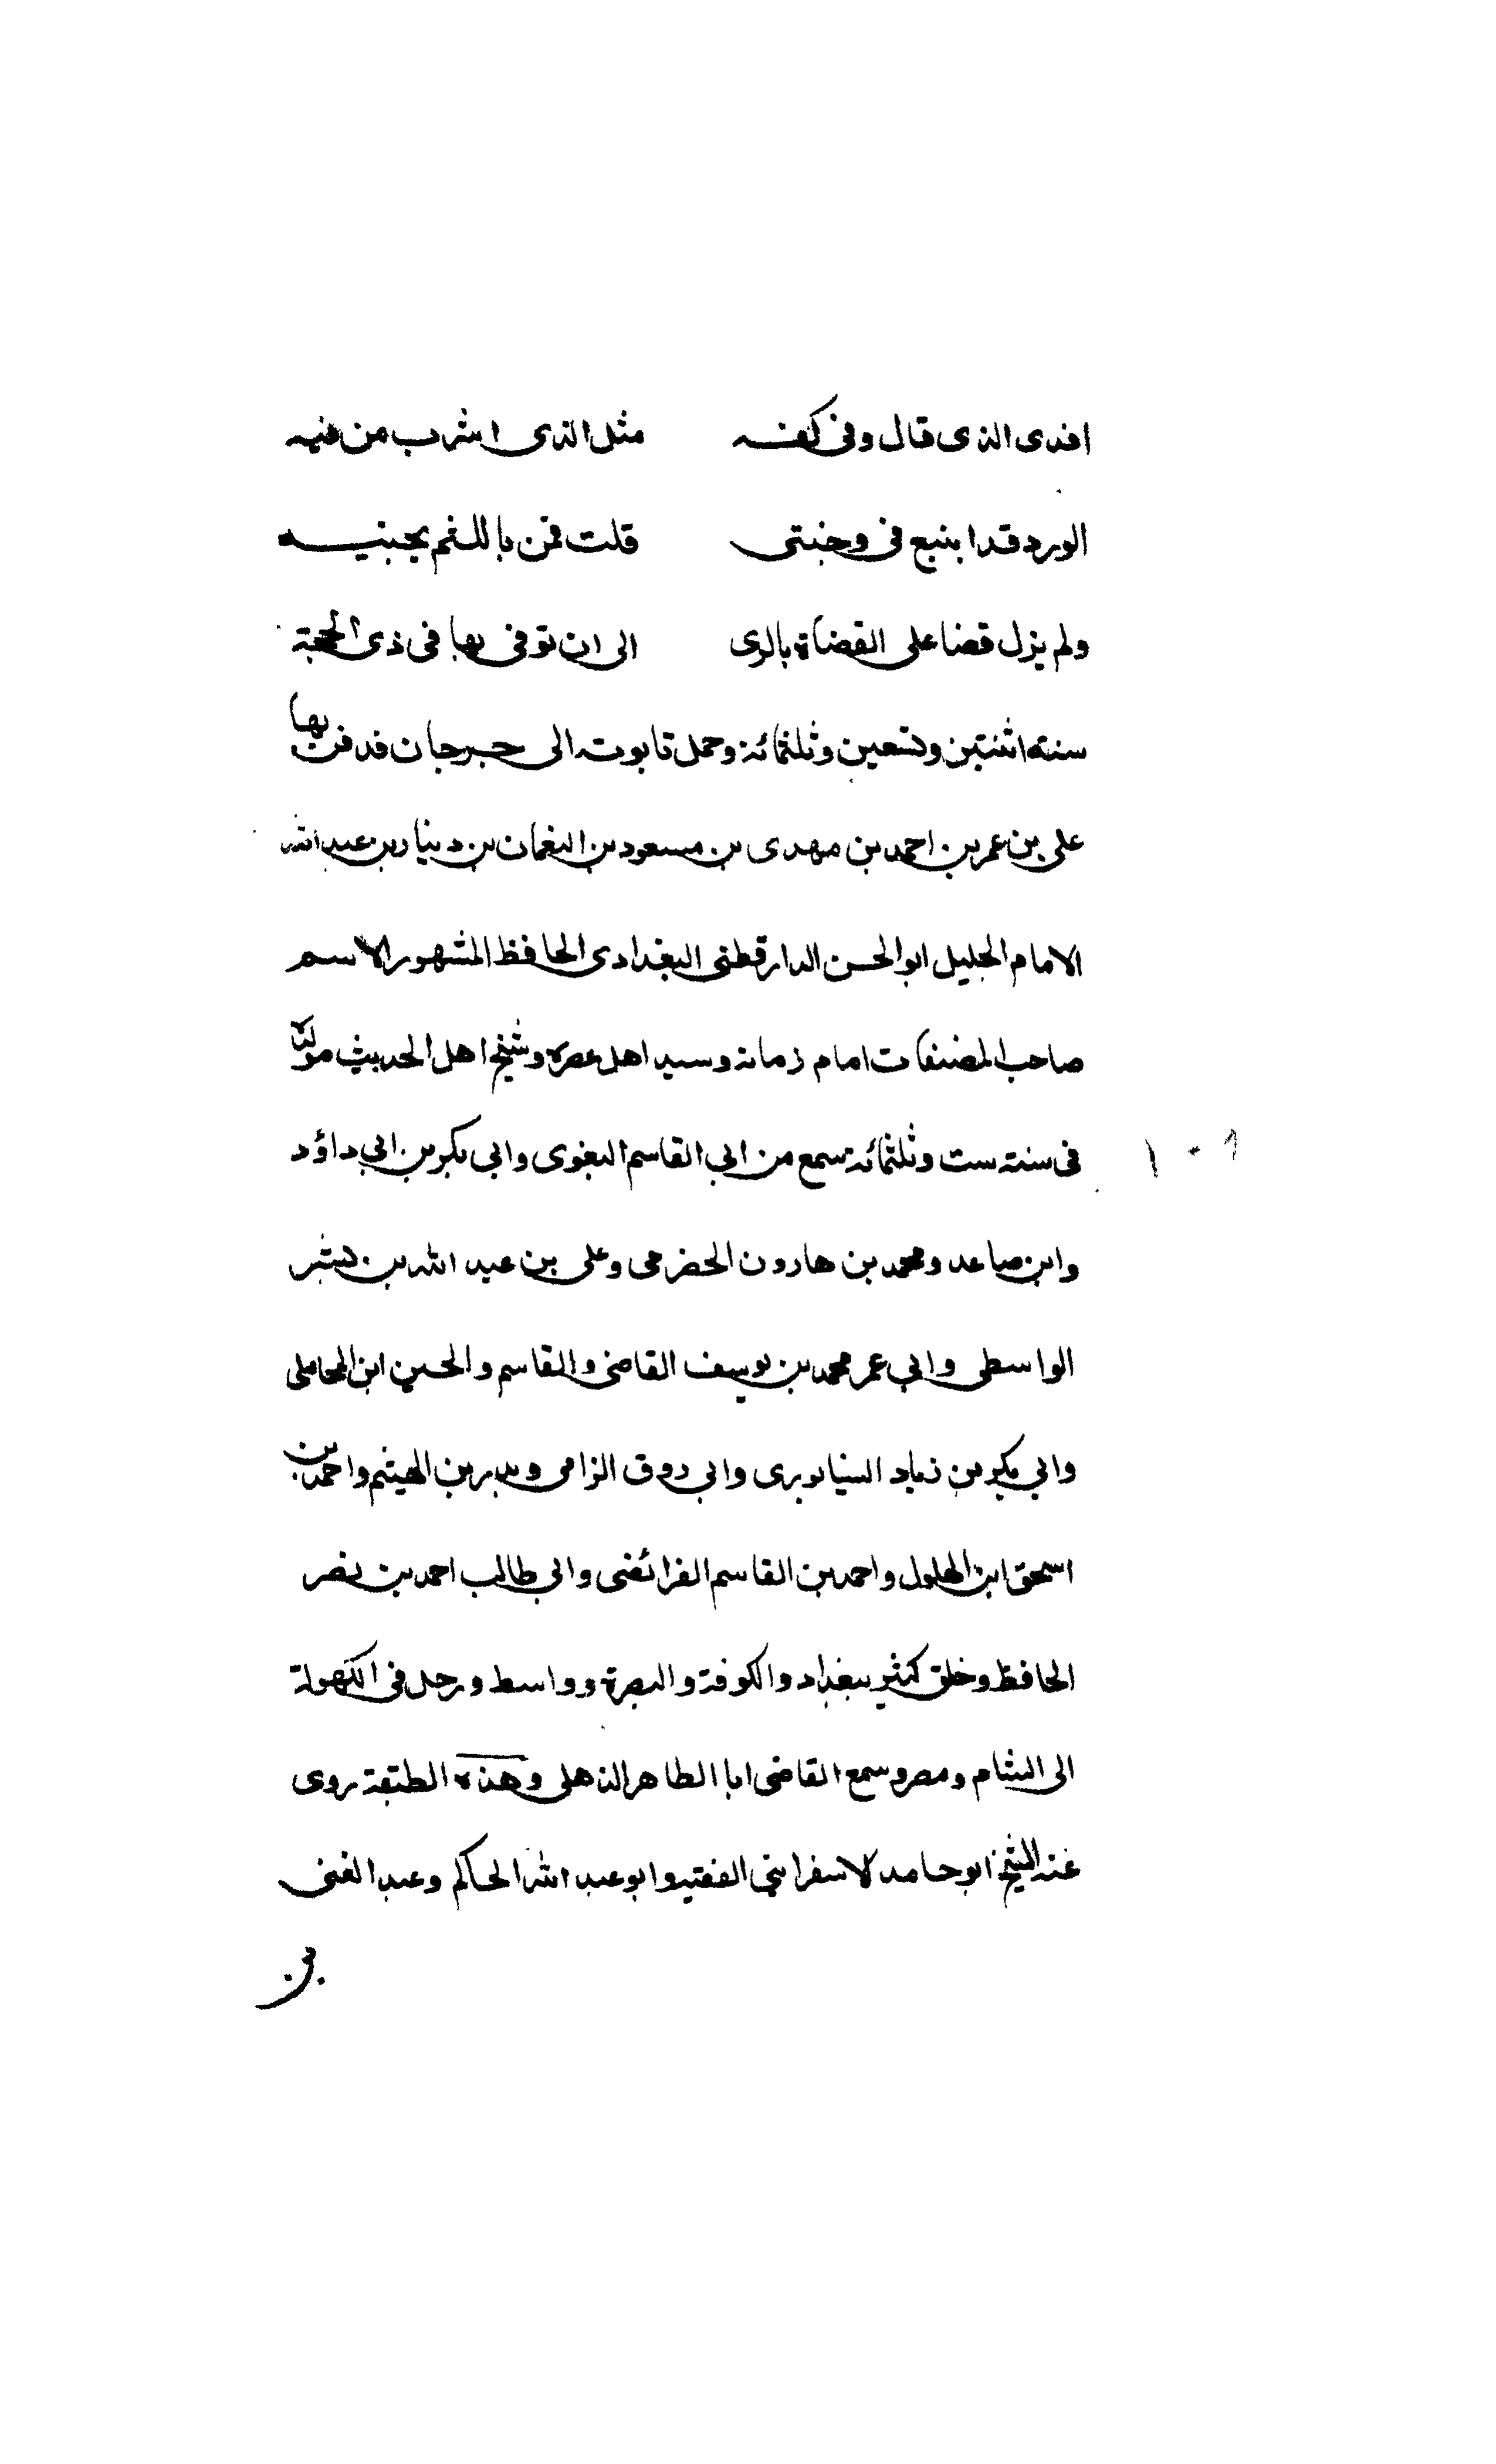 افدى الذى قال وفى كفـــه مثل الذى اشرب من فيه
الورد قد ابنبع فى وجنتى قلت فمن باللثم يجبنيـــه
ولم يزل قضا على القضاة بالرى الى ان توفى بها فى ذى الحجة
سنة اثنتين وتسعين وثلثمائة وحمل تابوته الى جرجان فدفن بها
على بن عمر بن احمد بن مهدى بن مسعود بن النعمان بن دينار بن عبد الله
الامام الجليل ابو الحسن الدارقطنى البغدادى الحافظ المشهور الاسم
صاحب المصنفات امام زمانة وسيد اهل عصره وشيخ اهل الحديث مولده
فى سنة ست وثلثمائة سمع من ابى القاسم البغوى وابى بكر بن ابى داؤد
وابن صاعد ومحمد بن هارون الحضرمى وعلى بن عبد الله بن بشر
الواسطى وابى عمر محمد بن يوسف القاضى والقاسم والحسين ابن المحاملى
وابى بكر بن زياد النيابورى وابى روق الزامى وبدر بن الهيثم واحمد بن
اسحق ابن الهلول واحمد بن القاسم الفرائضى وابى طالب احمد بن نصر
الحافظ وخلق كثير ببغداد والكوفة والبصرة وواسط ورحل فى الكهولة
الى الشام ومصر وسمع القاضى ابا الطاهر الذهلى وهذه الطبقة روى
عنه الشيخ ابو حامد الاسفراينى الفقيه وابو عبد الله الحاكم وعبد الغنى
بن